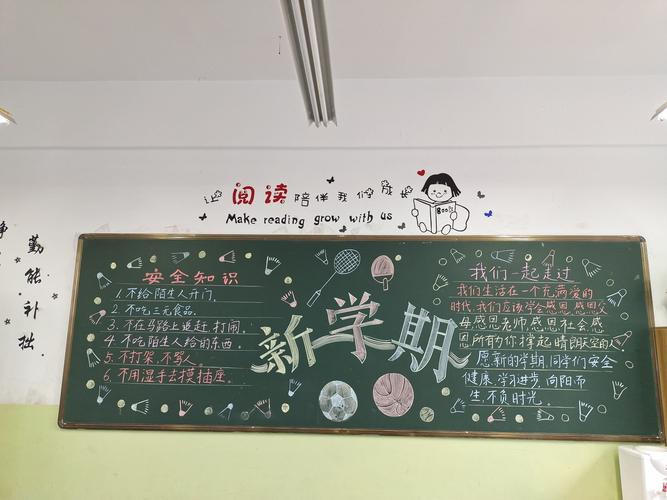 让阅读陪伴我们成长
Make reading grow with us
BOOK
勤能补拙
安全知识
1.不给陌生人开门.
2.不吃三无食品.
3.不在马路上追赶.打闹.
4.不吃陌生人给的东西.
5.不打架.不骂人.
6.不用湿手去摸插座.
新学期
我们一起走过
我们生活在一个充满爱的
时代.我们应该学会感恩.感恩父
母感恩老师.感恩社会.感
恩所有的你.撑起晴朗天空的人
愿新的学期.同学们安全
健康.学习进步.向阳而
生.不负时光.